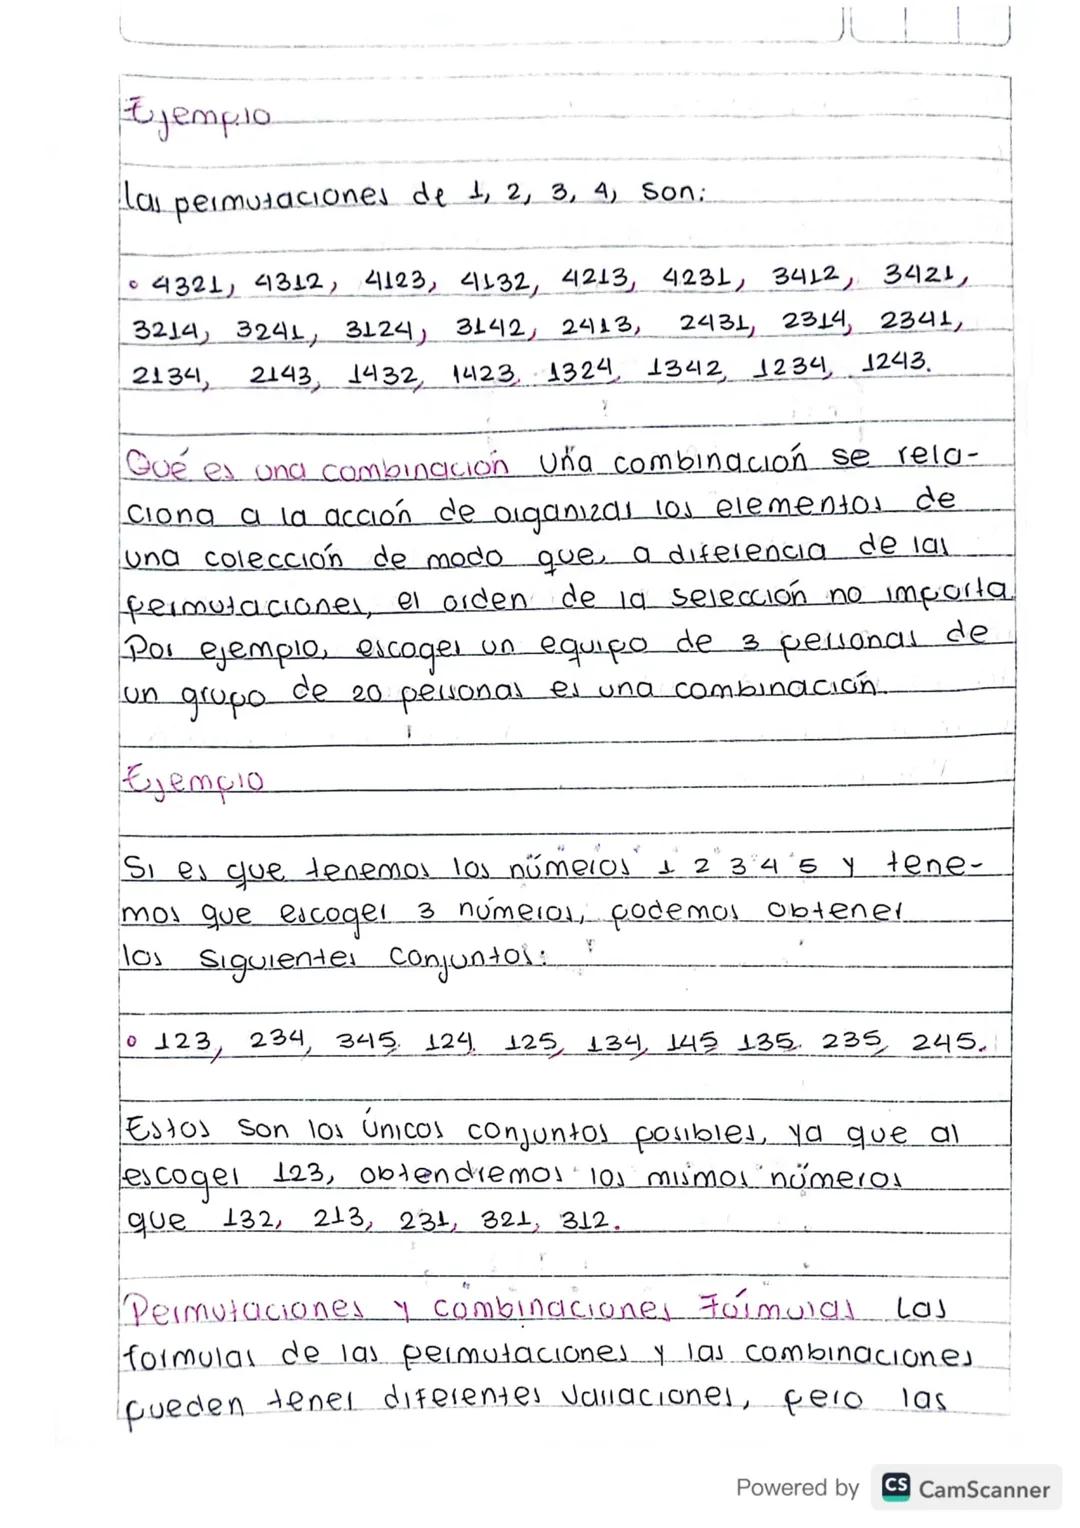 Ejemplo
las permutaciones de 1, 2, 3, 4, son:
• 4321, 4312, 4123, 4132, 4213, 4231, 3412, 3421,
3214, 3241, 3124, 3142, 2413, 2431, 2314, 2341,
2134, 2143, 1432, 1423, 1324, 1342, 1234, 1243.
Qué es una combinación una combinación se rela-
ciona a la acción de organizar los elementos de
una colección de modo que, a diferencia de las
permutaciones, el orden de la selección no importa.
Por ejemplo, escoger un equipo de 3 personas de
un grupo de 20 personas es una combinación.
Ejemplo
Si es que tenemos los números 1 2 3 4 5 y tene-
mos que escoger 3 números, podemos obtener
los siguientes conjuntos:
• 123, 234, 345. 124, 125, 134, 145 135. 235, 245.
Estos son los únicos conjuntos posibles, ya que al
escoger 123, obtendremos los mismos números
que 132, 213, 231, 321, 312.
Permutaciones y combinaciones Fórmulas Las
formulas de las permutaciones y las combinaciones
pueden tener diferentes variaciones, pero las
Powered by CS CamScanner